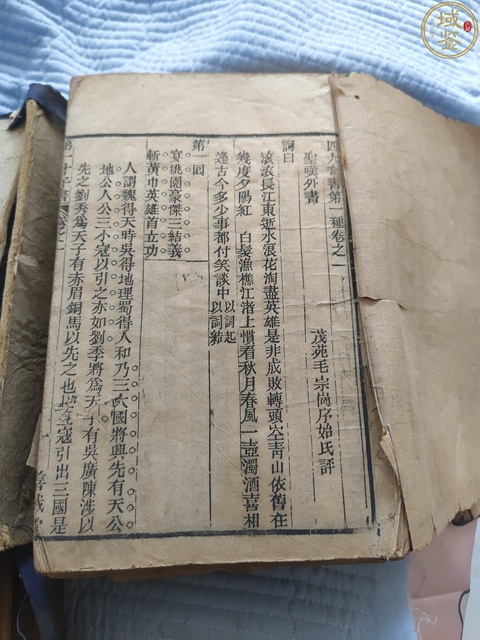 四大奇書第一種卷之一
聖嘆外書
茂苑毛宗崗序始氏評
詞曰
滾滾長江東逝水浪花淘盡英雄是非成敗轉頭空青山依舊在
幾度夕陽紅 白髮漁樵江渚上慣看秋月春風一壺濁酒喜相
逢古今多少事都付笑談中以詞起以詞結
第一回
宴桃園豪傑三結義
斬黃巾英雄首立功
人謂魏得天時吳得地理蜀得人和乃三大國將興先有天公
地公人公三小寇以引之亦如劉季將爲天子有吳廣陳涉以
先之劉秀爲天子有赤眉銅馬以先之也以三寇引出三國是
第一才子書
卷之一
域鑒